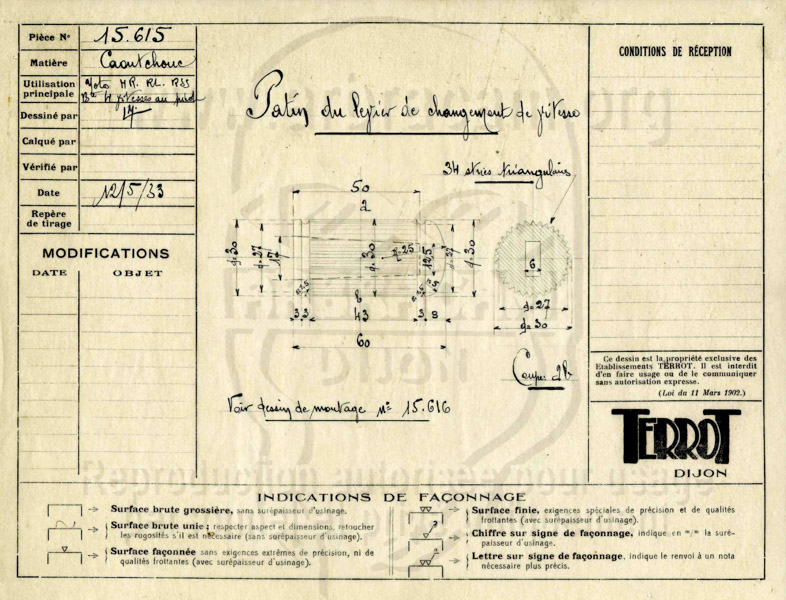 Pièce N° 15.615
Matière Caoutchouc
Utilisation principale Moto HR. RL. RSS
Bte 4 vitesses au pied
Dessiné par
Calqué par
Vérifié par
Date 12/5/33
Repère de tirage
MODIFICATIONS
DATE OBJET
Patin du levier de changement de vitesse
34 stries triangulaires
50
a
d=30
d=27
15
d=30
R=25
12,5
d=27
d=30
b
3 3 43 3 8
60
6
d=27
d=30
Coupe ab
Voir dessin de montage n° 15.616
CONDITIONS DE RÉCEPTION
Ce dessin est la propriété exclusive des
Etablissements TERROT. Il est interdit
d'en faire usage ou de le communiquer
sans autorisation expresse.
(Loi du 11 Mars 1902.)
TERROT
DIJON
INDICATIONS DE FAÇONNAGE
Surface brute grossière, sans surépaisseur d'usinage.
Surface brute unie ; respecter aspect et dimensions, retoucher
les rugosités s'il est nécessaire (sans surépaisseur d'usinage).
Surface façonnée sans exigences extrêmes de précision, ni de
qualités frottantes (avec surépaisseur d'usinage).
Surface finie, exigences spéciales de précision et de qualités
frottantes (avec surépaisseur d'usinage).
Chiffre sur signe de façonnage, indique en m/m la suré-
paisseur d'usinage.
Lettre sur signe de façonnage, indique le renvoi à un nota
nécessaire plus précis.
Reproduction autorisée pour usage